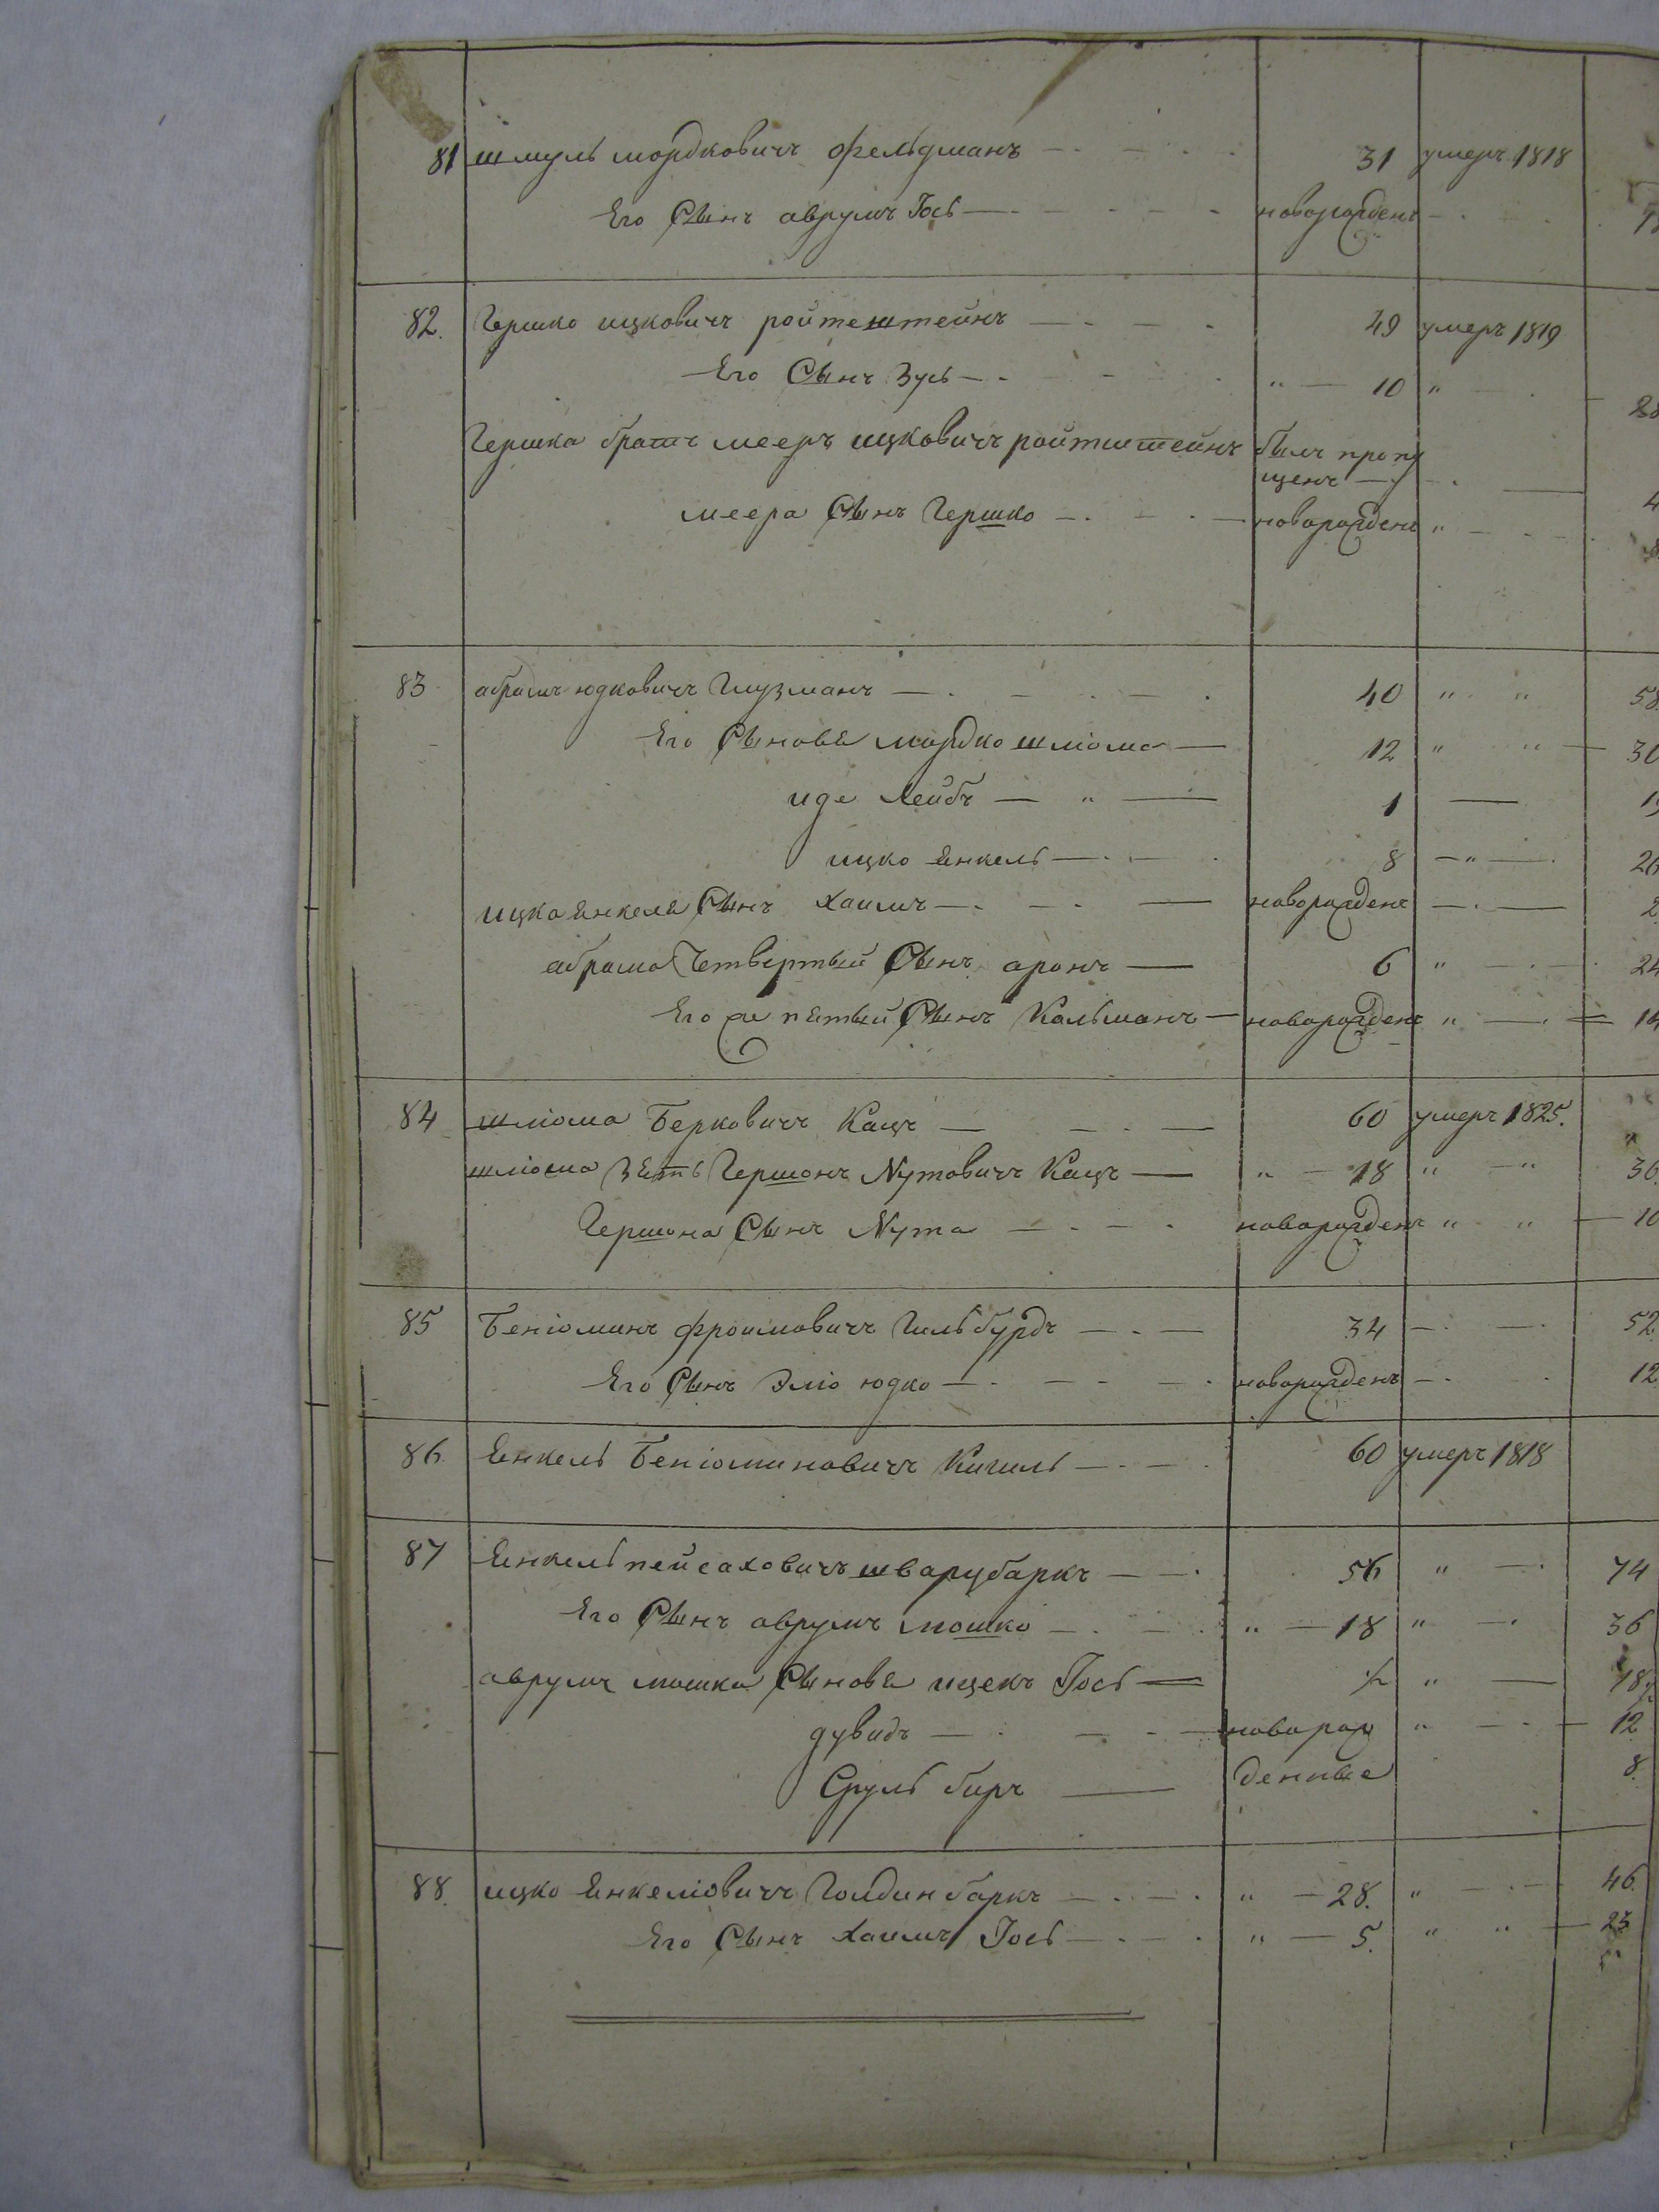 81 шмуль мордковичъ фельдманъ 31 умеръ 1818
Его Сынъ аврумъ Іось новорожденъ
82. Гершко ицковичъ ройтештейнъ 49 умеръ 1819
Его Сынъ Зусь " 10 "
Гершка братъ мееръ ицковичъ ройтштейнъ былъ пропу
щенъ
меера Сынъ Гершко новорожденъ "
83 абрамъ юдковичъ Глузманъ 40 " " 58
Его Сыновя мордко шліома 12 " " 30
иде Лейбъ " 1
ицко Янкель 8 " 26
ицка Янкеля Сынъ хаимъ новорожденъ 2
абрама Четвертый Сынъ аронъ 6 " 24
Его же пятый Сынъ Кальманъ новорожденъ " 14
84 шліома Берковичъ Кацъ 60 умеръ 1825.
шліома Зять Гершонъ Нутовичъ Кацъ " 18 " " 36
Гершона Сынъ Нута новорожденъ " " 10
85 Беніоминъ фроимовичъ Гильбурдъ 34 52
Его Сынъ Эліо юдко новорожденъ 12
86. Янкель Беніоминовичъ Кигиль 60 умеръ 1818
87 Янкель пейсаховичъ шварцбаркъ 56 " 74
Его Сынъ аврумъ мошко " 18 " 36
аврумъ мошка Сыновя ицекъ Іось ½ " 18½
дувидъ новорож " 12
Сруль биръ денные 8.
88. ицко Янкеліовичъ Голдинбаркъ " 28. " 46.
Его Сынъ хаимъ Іось " 5. " " 23